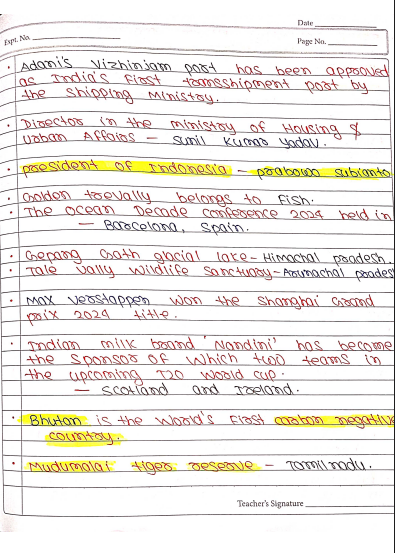 Date
Expt. No.
Page No.
• Adani's Vizhinjam port has been approved
as India's first transshipment port by
the shipping Ministry.
• Director in the ministry of Housing &
Urban Affairs - sunil kumar yadav.
• president of Indonesia - prabowo subianto
• Golden trevally belongs to Fish.
• The ocean Decade conference 2024 held in
- Barcelona, Spain.
• Gepang Gath glacial lake - Himachal pradesh.
• Tale vally wildlife Sanctuary - Arunachal prades
• Max verstappen won the Shanghai Grand
prix 2024 title.
• Indian milk brand 'Nandini' has become
the sponsor of which two teams in
the upcoming T20 world cup.
- Scotland and Ireland.
• Bhutan is the world's first carbon negative
country.
• Mudumalai tiger reserve - Tamil nadu.
Teacher's Signature